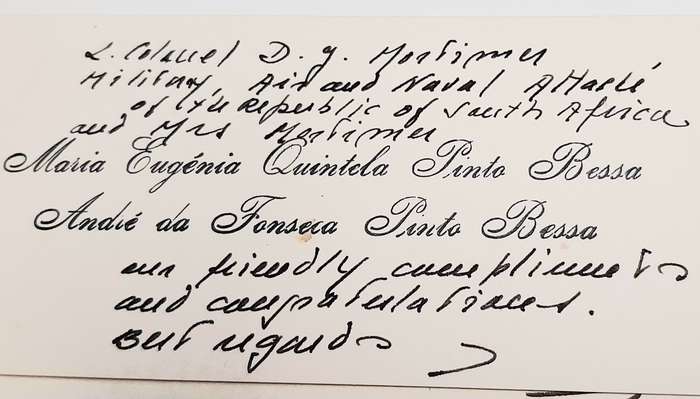 L. Colonel D. J. Mortimer
Military, Air and Naval Attaché,
of the Republic of South Africa
and Mrs Mortimer
Maria Eugénia Quintela Pinto Bessa
André da Fonseca Pinto Bessa
our friendly compliments
and congratulations.
Best regards